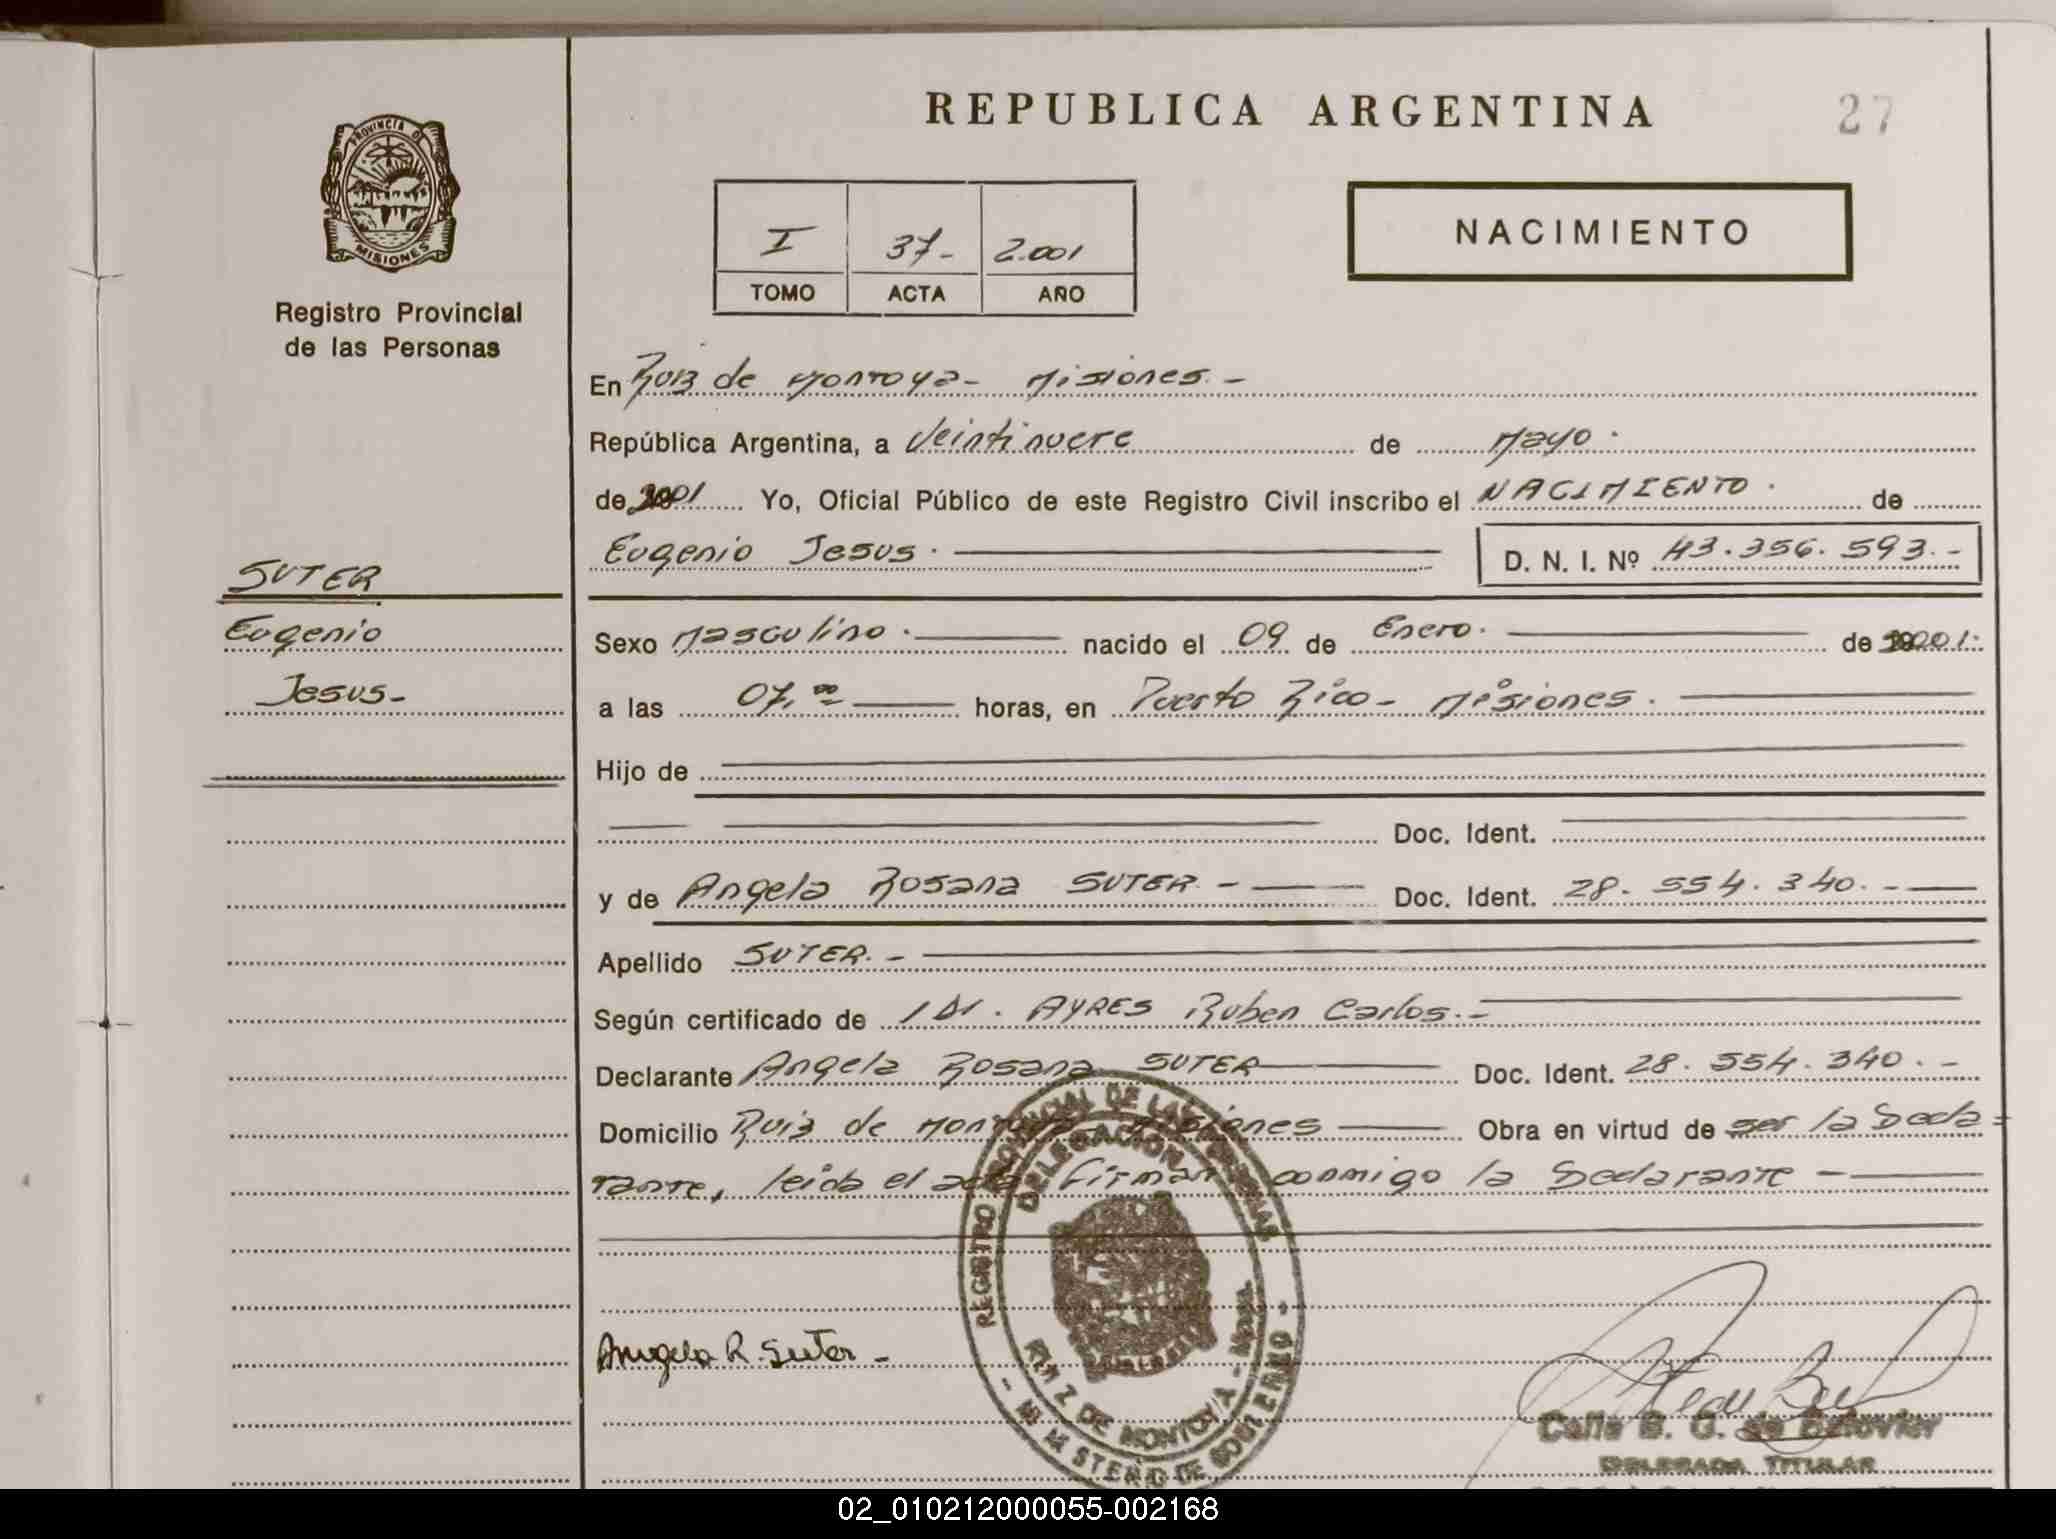 REPUBLICA ARGENTINA
27
PROVINCIA DE
MISIONES
Registro Provincial
de las Personas
I 37- 2.001
TOMO ACTA AÑO
NACIMIENTO
En Ruiz de Montoya- Misiones.-
República Argentina, a Veintinueve de Mayo.
de 2001 Yo, Oficial Público de este Registro Civil inscribo el NACIMIENTO. de
Eugenio Jesus. D. N. I. Nº 43.356.593.-
SUTER
Eugenio
Jesus-
Sexo Masculino. nacido el 09 de Enero. de 2001.
a las 07,00 horas, en Puerto Rico- Misiones.
Hijo de
Doc. Ident.
y de Angela Rosana SUTER.- Doc. Ident. 28.554.340.-
Apellido SUTER.-
Según certificado de AYRES Ruben Carlos.-
Declarante Angela Rosana SUTER Doc. Ident. 28.554.340.-
Domicilio Ruiz de Montoya Misiones Obra en virtud de ser la Decla=
rante, leida el acta firman conmigo la Declarante-
REGISTRO PROVINCIAL DE LAS PERSONAS
DELEGACION
RUIZ DE MONTOYA - Mnes.
- MINISTERIO DE GOBIERNO -
Angela R. Suter-
G. de
DELEGADA TITULAR
02_010212000055-002168